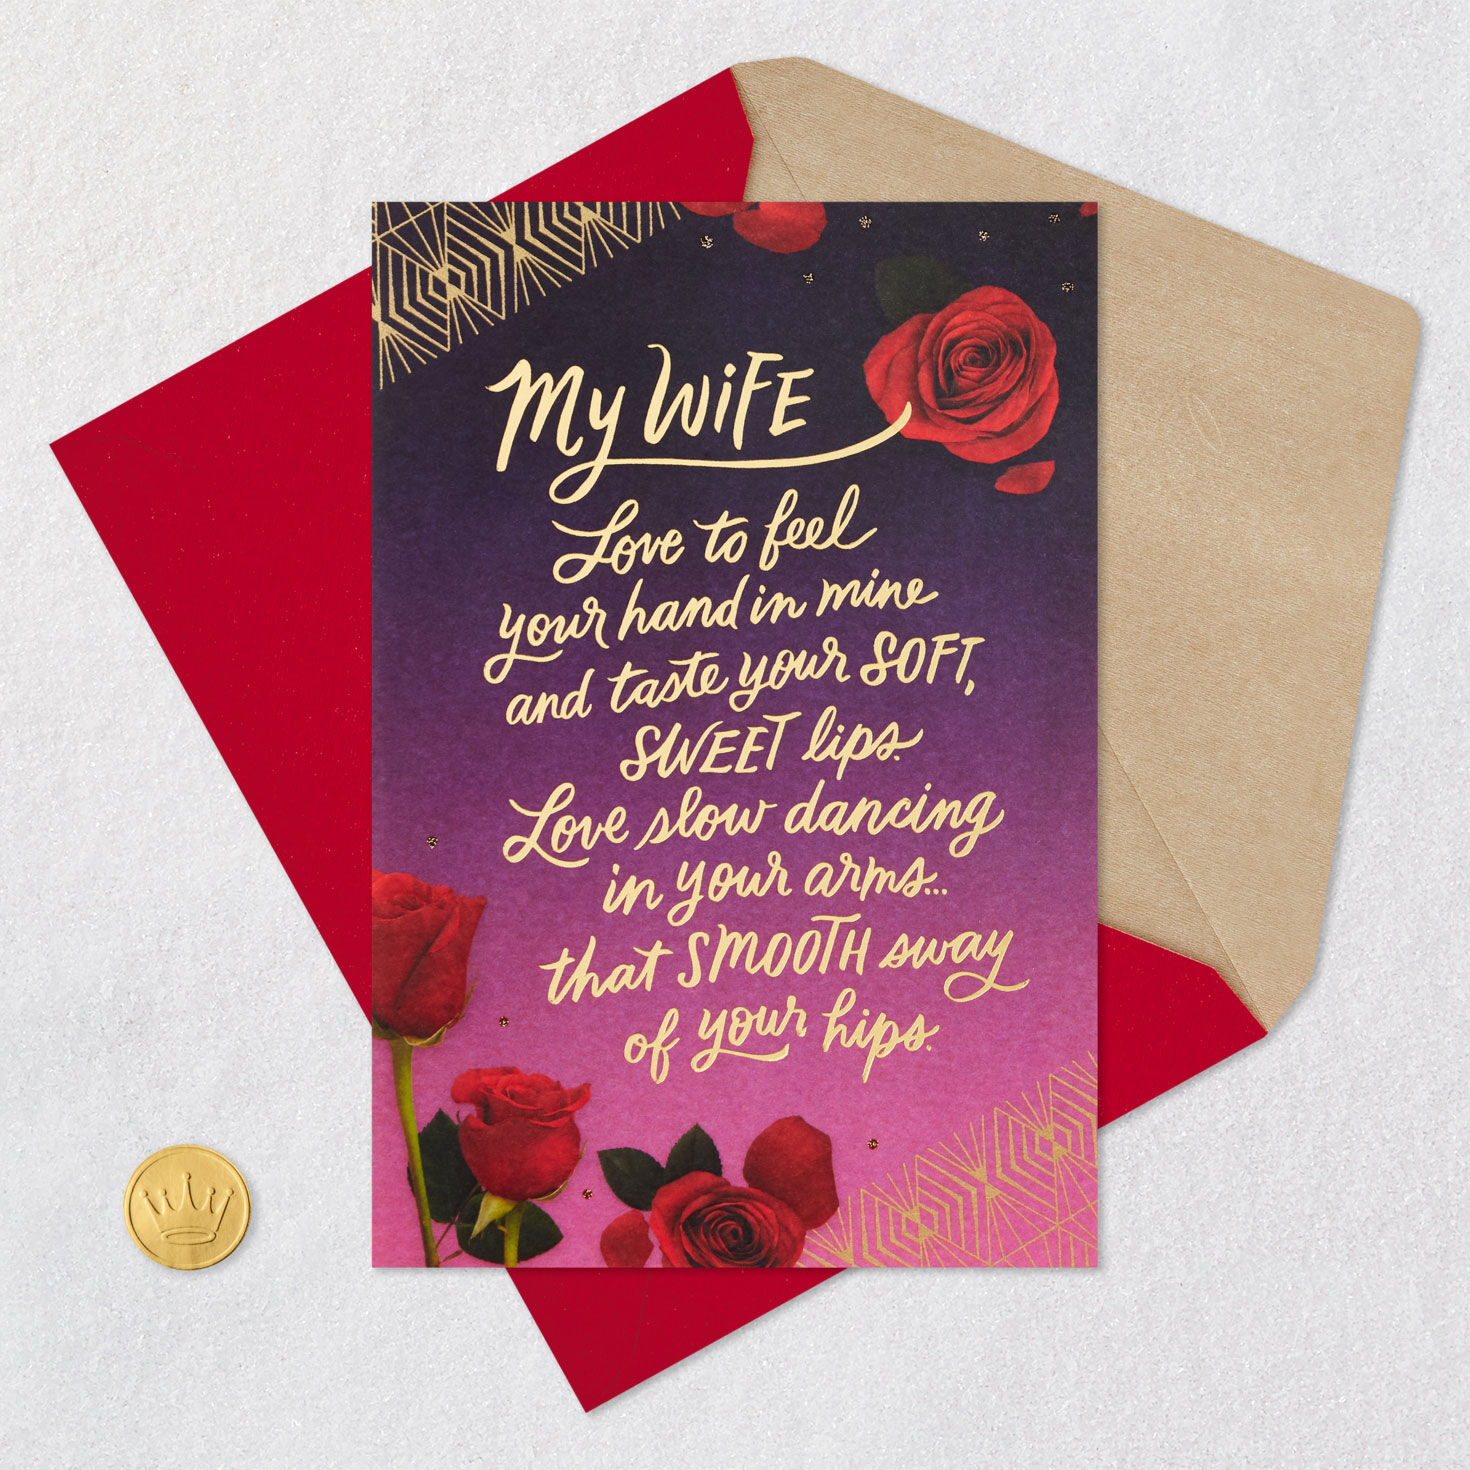 My WiFE
Love to feel
your hand in mine
and taste your SOFT,
SWEET lips.
Love slow dancing
in your arms...
that SMOOTH sway
of your hips.